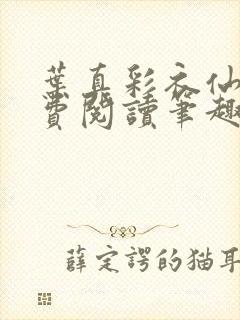 葉真彩衣仙
費閱讀筆趣
薛定諤的猫耳